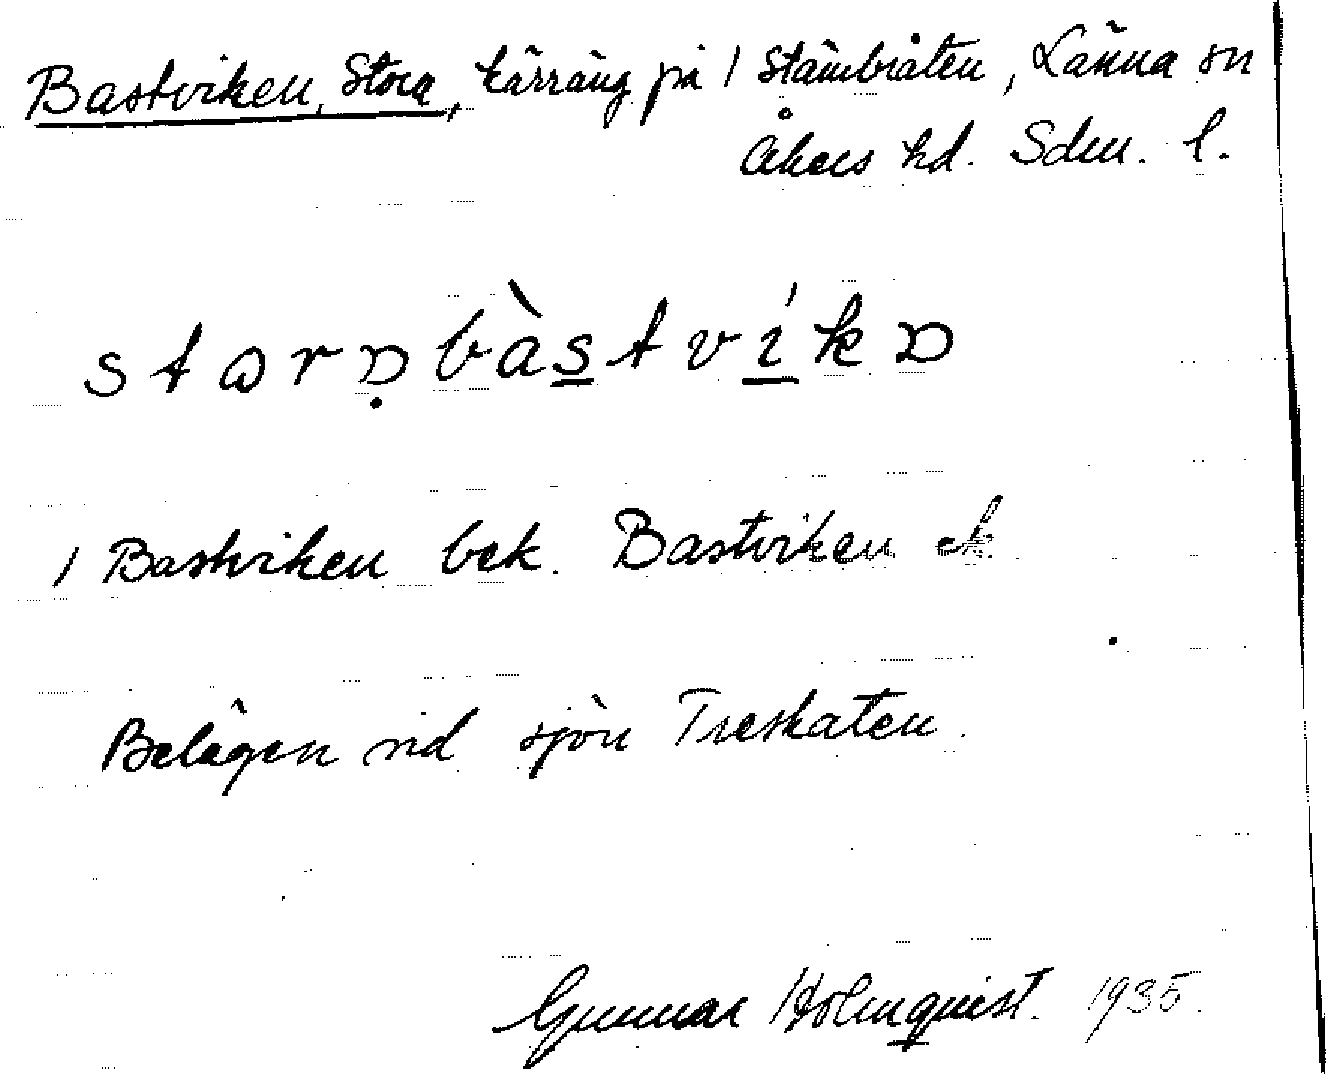 Bastviken, Stora, kärräng på / Stämbråten, Länna sn
Åkers hd. Sdm. l.
starɒ̣bàstvíkɒ
/ Bastviken bek. Bastviken ek.
Belägen vid sjön Treskaten.
Gunnar Holmquist. 1935.